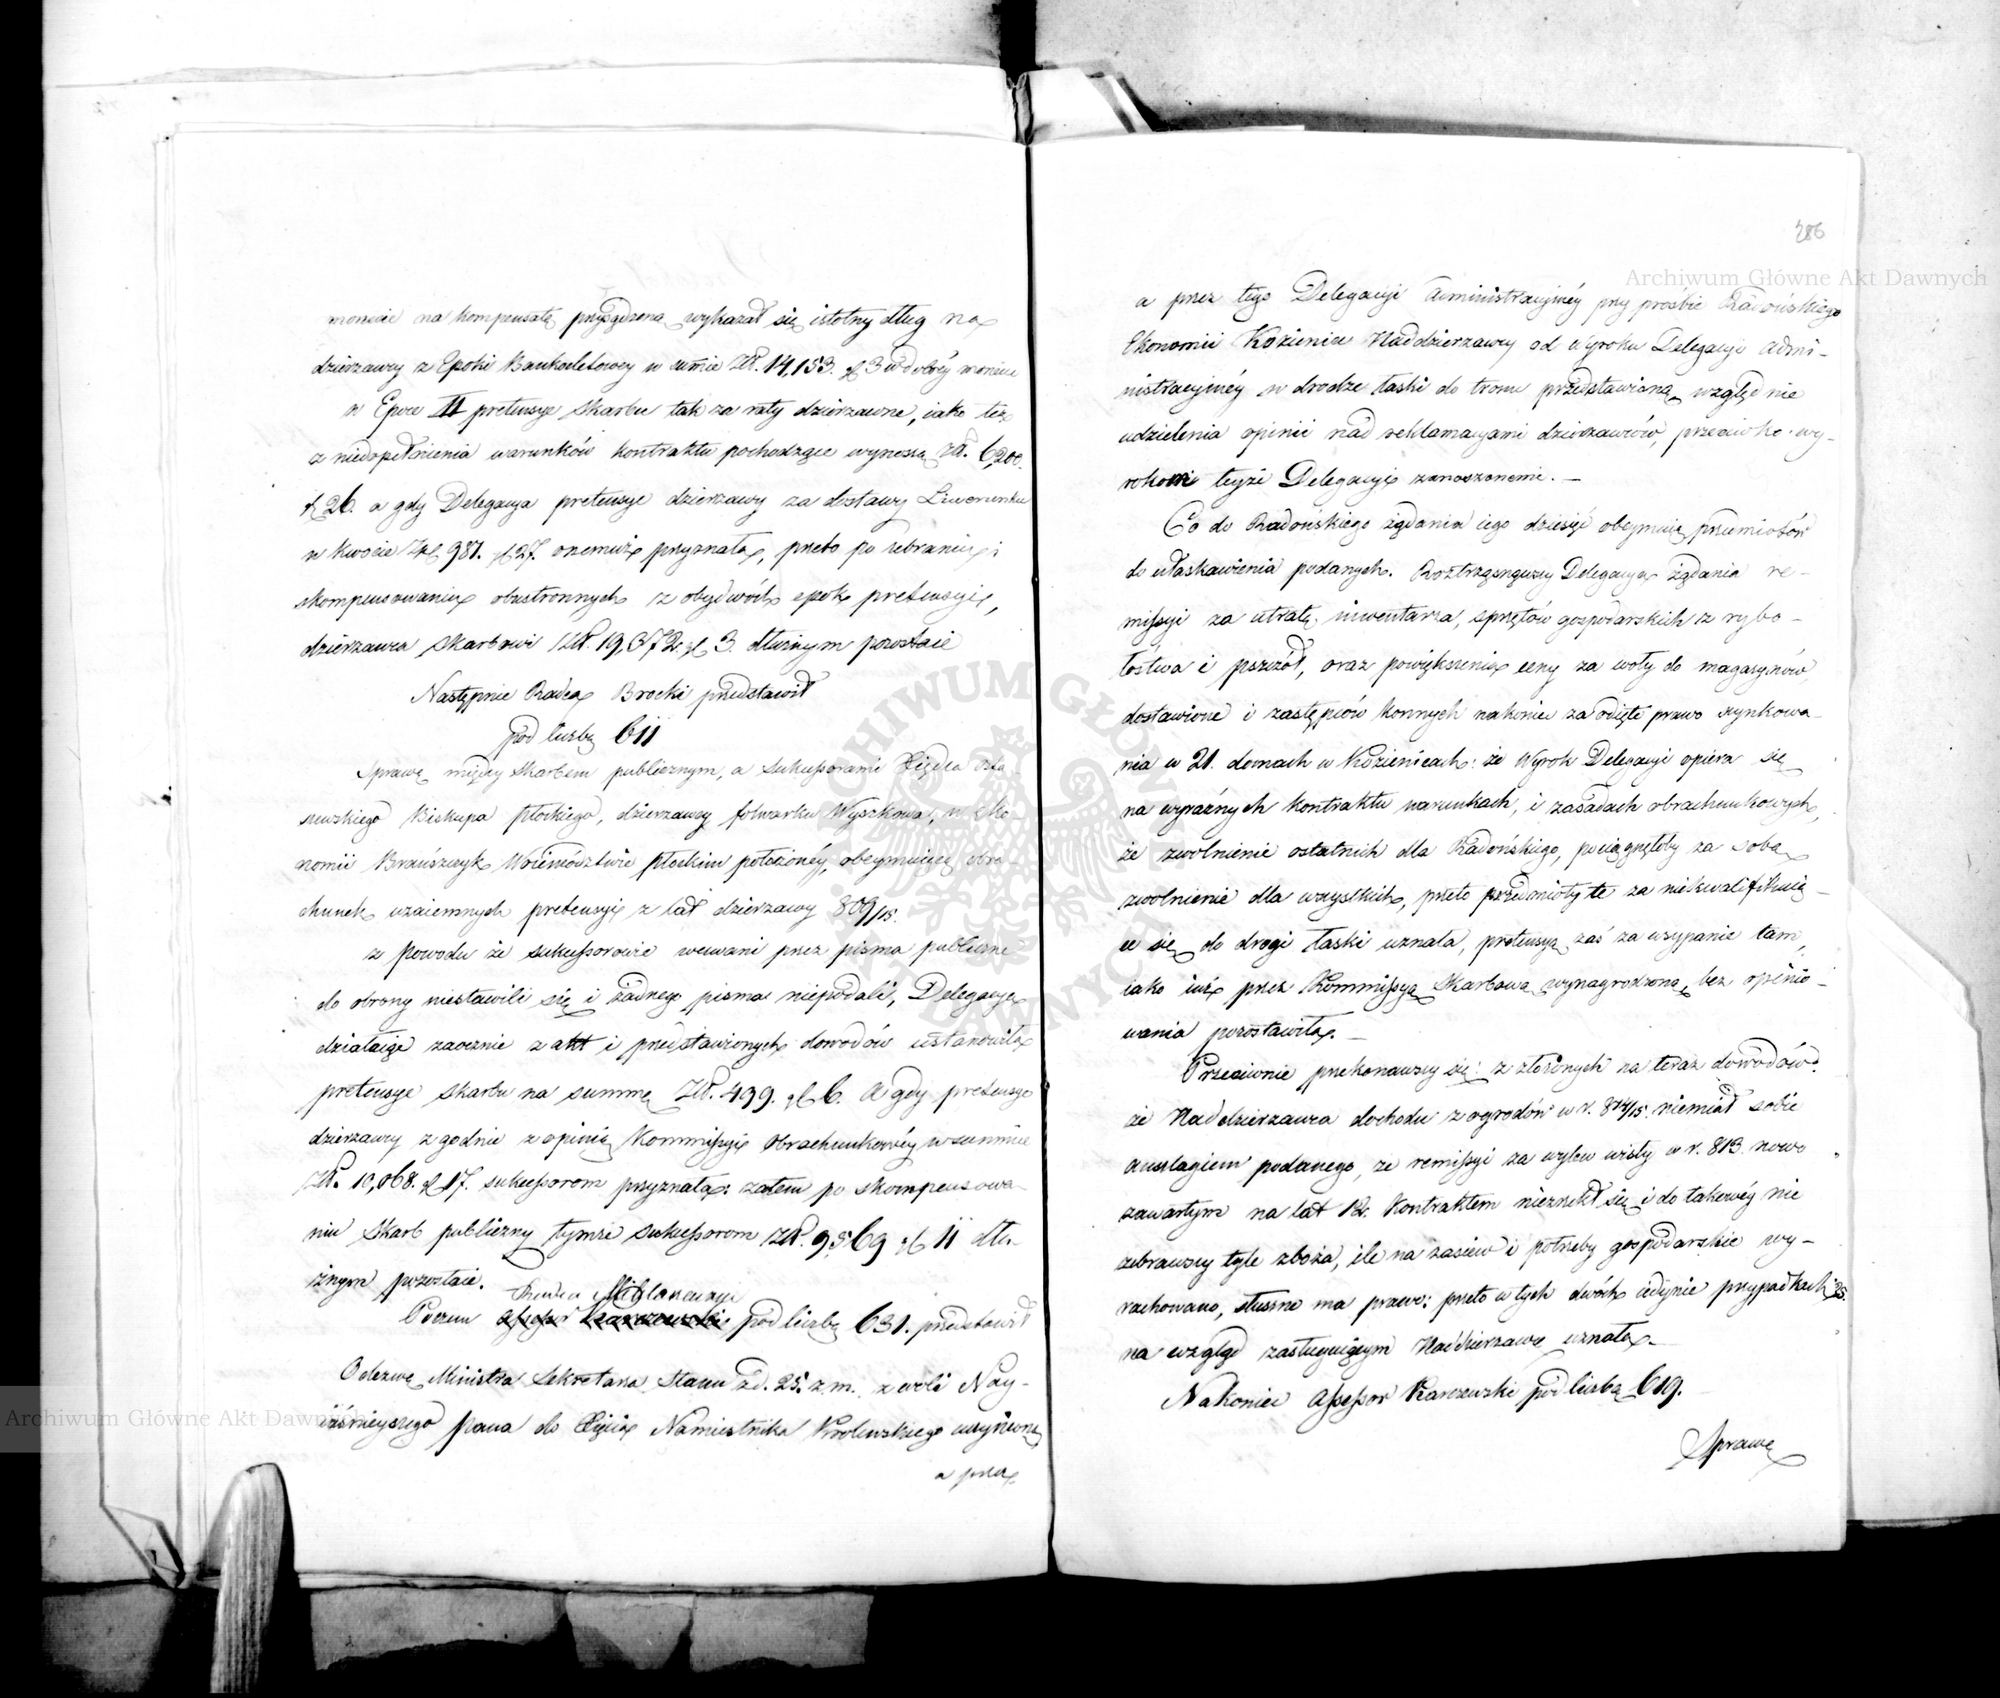 monecie na kompensatę przysądzoną wykazał się istotny dług na
dzierżawcy z Epoki Bankocletowey w sumie Złt. 14,153. gr 3 w dobréy monecie
w Epoce II pretensye Skarbu tak za raty dzierżawne, iako też
z niedopełnienia warunków kontraktu pochodzące wynoszą Złt. 6,200.
gr 26. a gdy Delegacya pretensye dzierżawcy za dostawy Liwerunku
w kwocie Złt 981. gr 27. onemuż przyznała, przeto po zebraniu i
skompensowaniu obustronnych z obydwóch epok pretensyi,
dzierżawca Skarbowi Złt. 19,372. gr 3. dłużnym pozostaie
Następnie Radca Brocki przedstawił
pod liczbą 611
Sprawę między Skarbem publicznym, a sukcessorami Xiędza
Biskupa Płockiego, dzierżawcy folwarku Wyszkowa, w Eko-
nomii Brańszczyk Woiewództwie Płockim położonéy, obeymuiącą obra-
chunek wzaiemnych pretensyi z lat dzierżawy 809/15.
z powodu że sukcessorowie wezwani przez pisma publiczne
do obrony niestawili się i żadnego pisma niepodali, Delegacya
działaiąc zaocznie z akt i przedstawionych dowodów ustanowiła
pretensye Skarbu na summę Złt. 499. gr 6. A gdy pretensye
dzierżawcy zgodnie z opinią Kommissyi Obrachunkowéy w summie
Złt. 10,068. gr 17. sukcessorom przyznała: zatem po skompensowa-
niu Skarb publiczny tymże sukcessorom Złt. 9,569 gr 11 dłu-
żnym pozostaie.
Radca Miklaszewski
Poczem Assessor Karczewski pod liczbą 631. przedstawił
Odezwę Ministra Sekretarza Stanu z d. 25. z. m. z woli Nay-
iaśnieyszego Pana do Xięcia Namiestnika Królewskiego uczynioną
a przez
286
a przez tego Delegacyi Administracyinéy przy prosbie Radońskiego
Ekonomii Kozienice Naddzierżawcy od wyroku Delegacyi Admi-
nistracyinéy w drodze łaski do tronu przedstawioną, względnie
udzielenia opinii nad reklamacyami dzierżawców, przeciwko wy-
rokom teyże Delegacyi zanoszonemi. —
Co do Radońskiego żądania iego dziesięć obeymuią przedmiotów
do ułaskawienia podanych. Roztrząsnąwszy Delegacya żądania re-
missyi za utratę inwentarza, sprzętów gospodarskich z rybo-
łostwa i pszczół, oraz powiększenia ceny za woły do magazynów
dostawione i zastępców konnych nakoniec za odięte prawo szynkowa-
nia w 21. domach w Kozienicach: że Wyrok Delegacyi opiera się
na wyraźnych kontraktu warunkach, i zasadach obrachunkowych,
że zwolnienie ostatnich dla Radońskiego, pociągnęłoby za sobą
zwolnienie dla wszystkich, przeto przedmioty te za niekwalifikuią-
ce się do drogi łaski uznała, pretensyą zaś za usypanie tam,
iako iuż przez Kommissyą Skarbową wynagrodzoną, bez opinio-
wania pozostawiła. —
Przeciwnie przekonawszy się: z złożonych na teraz dowodów.
że Naddzierżawca dochodu z ogrodów w r. 814/15. niemiał sobie
anszlagiem podanego, że remissyi za wylew wisły w r. 813. nowo
zawartym na lat 12. Kontraktem niezrzekł się i do takowéy nie
zebrawszy tyle zboża, ile na zasiew i potrzeby gospodarskie wy-
rachowano, słuszne ma prawo: przeto w tych dwóch iedynie przypadkach
na wzgląd zasługuiącym Naddzierżawcę uznała. —
Nakoniec Assessor Karczewski pod liczbą 619.
Sprawę
Archiwum Główne Akt Dawnych
Archiwum Główne Akt Dawnych
ARCHIWUM GŁÓWNE AKT DAWNYCH